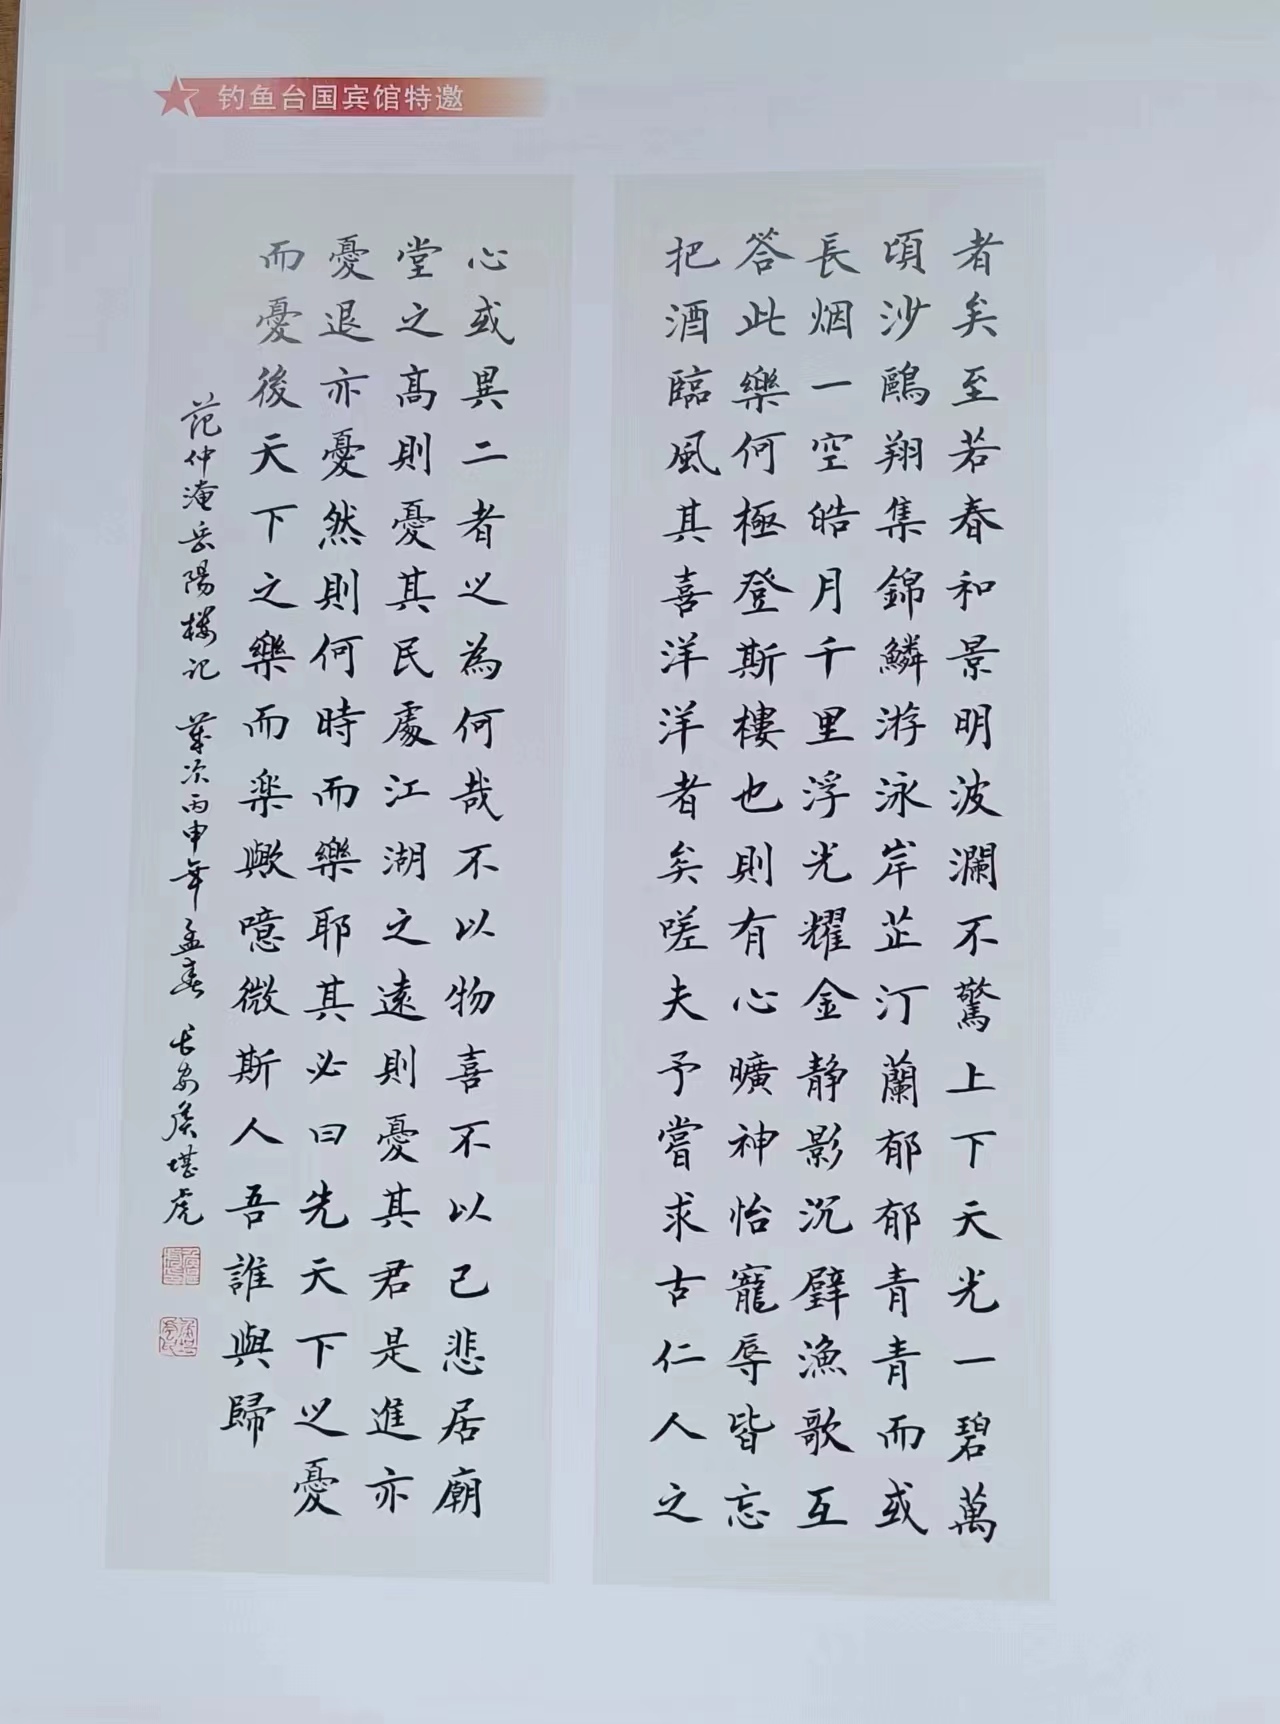 钓鱼台国宾馆特邀
者矣至若春和景明波瀾不驚上下天光一碧萬
頃沙鷗翔集錦鱗游泳岸芷汀蘭郁郁青青而或
長烟一空皓月千里浮光耀金静影沉璧漁歌互
答此樂何極登斯樓也則有心曠神怡寵辱皆忘
把酒臨風其喜洋洋者矣嗟夫予嘗求古仁人之
心或異二者之為何哉不以物喜不以己悲居廟
堂之高則憂其民處江湖之遠則憂其君是進亦
憂退亦憂然則何時而樂耶其必曰先天下之憂
而憂後天下之樂而楽歟噫微斯人吾誰與歸
范仲淹岳陽楼记 歲次丙申年孟春 长安侯堪虎